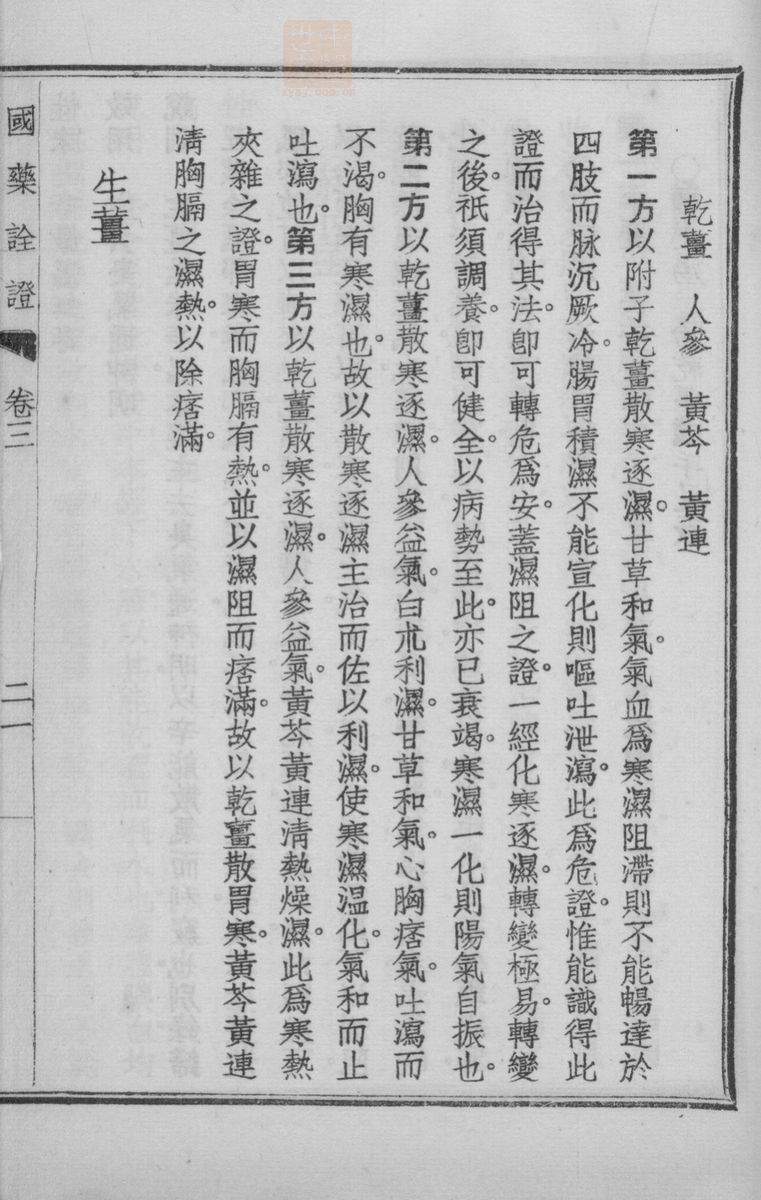 乾薑　人參　黃芩　黃連
第一方以附子乾薑散寒逐濕。甘草和氣。氣血爲寒濕阻滯則不能暢達於
四肢而脉沉厥冷。腸胃積濕不能宣化則嘔吐泄瀉。此爲危證。惟能識得此
證而治得其法。卽可轉危爲安。蓋濕阻之證。一經化寒逐濕。轉變極易。轉變
之後。祇須調養。卽可健全。以病勢至此。亦已衰竭。寒濕一化則陽氣自振也。
第二方以乾薑散寒逐濕。人參益氣。白朮利濕。甘草和氣。心胸痞氣。吐瀉而
不渴。胸有寒濕也。故以散寒逐濕主治而佐以利濕。使寒濕温化。氣和而止
吐瀉也。第三方以乾薑散寒逐濕。人參益氣。黃芩黃連淸熱燥濕。此爲寒熱
夾雜之證。胃寒而胸膈有熱。並以濕阻而痞滿。故以乾薑散胃寒。黃芩黃連
淸胸膈之濕熱。以除痞滿。
生薑
國藥詮證　卷三　二一